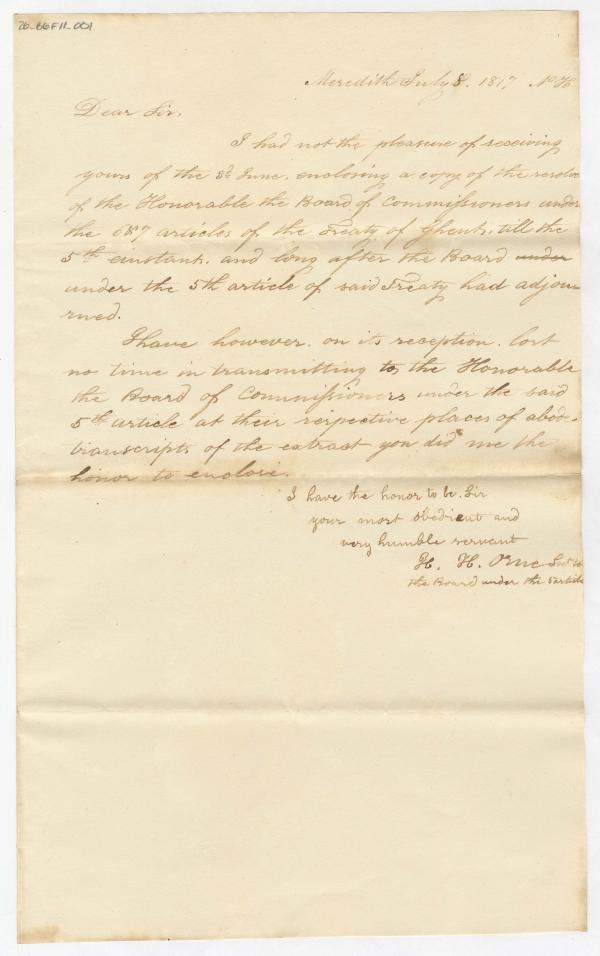 20-66F11-001
Meredith July 8. 1817 N. H
Dear Sir,
I had not the pleasure of receiving
yours of the 5th June, enclosing a copy of the resolve
of the Honorable the Board of Commissioners under
the 6 & 7 articles of the Treaty of Ghent, till the
5th instant, and long after the Board under
under the 5th article of said Treaty had adjou-
rned.
I have however, on its reception, lost
no time in transmitting to the Honorable
the Board of Commissioners under the said
5th article at their respective places of abode
transcripts of the extract you did me the
honor to enclose.
I have the honor to be, Sir
your most obedient and
very humble servant
H. H. Orne Sec. to
the Board under the 5 article